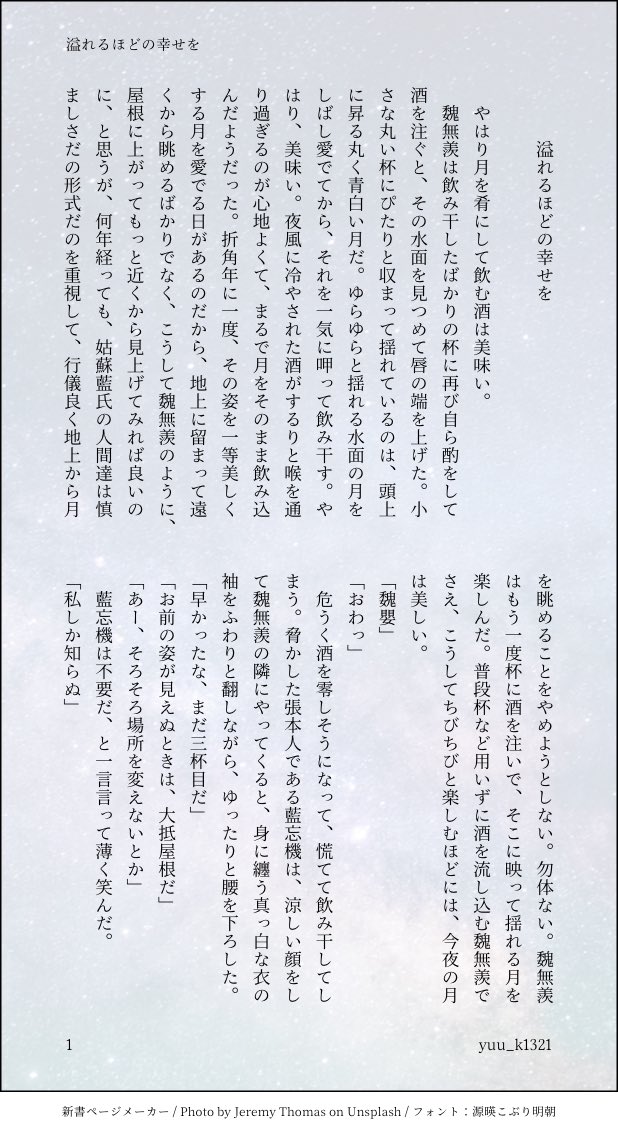 溢れるほどの幸せを
溢れるほどの幸せを
やはり月を肴にして飲む酒は美味い。
魏無羨は飲み干したばかりの杯に再び自ら酌をして
酒を注ぐと、その水面を見つめて唇の端を上げた。小
さな丸い杯にぴたりと収まって揺れているのは、頭上
に昇る丸く青白い月だ。ゆらゆらと揺れる水面の月を
しばし愛でてから、それを一気に呷って飲み干す。や
はり、美味い。夜風に冷やされた酒がするりと喉を通
り過ぎるのが心地よくて、まるで月をそのまま飲み込
んだようだった。折角年に一度、その姿を一等美しく
する月を愛でる日があるのだから、地上に留まって遠
くから眺めるばかりでなく、こうして魏無羨のように、
屋根に上がってもっと近くから見上げてみれば良いの
に、と思うが、何年経っても、姑蘇藍氏の人間達は慎
ましさだの形式だのを重視して、行儀良く地上から月
を眺めることをやめようとしない。勿体ない。魏無羨
はもう一度杯に酒を注いで、そこに映って揺れる月を
楽しんだ。普段杯など用いずに酒を流し込む魏無羨で
さえ、こうしてちびちびと楽しむほどには、今夜の月
は美しい。
「魏嬰」
「おわっ」
危うく酒を零しそうになって、慌てて飲み干してし
まう。脅かした張本人である藍忘機は、涼しい顔をし
て魏無羨の隣にやってくると、身に纏う真っ白な衣の
袖をふわりと翻しながら、ゆったりと腰を下ろした。
「早かったな、まだ三杯目だ」
「お前の姿が見えぬときは、大抵屋根だ」
「あー、そろそろ場所を変えないとか」
藍忘機は不要だ、と一言言って薄く笑んだ。
「私しか知らぬ」
1
yuu_k1321
新書ページメーカー / Photo by Jeremy Thomas on Unsplash / フォント：源暎こぶり明朝